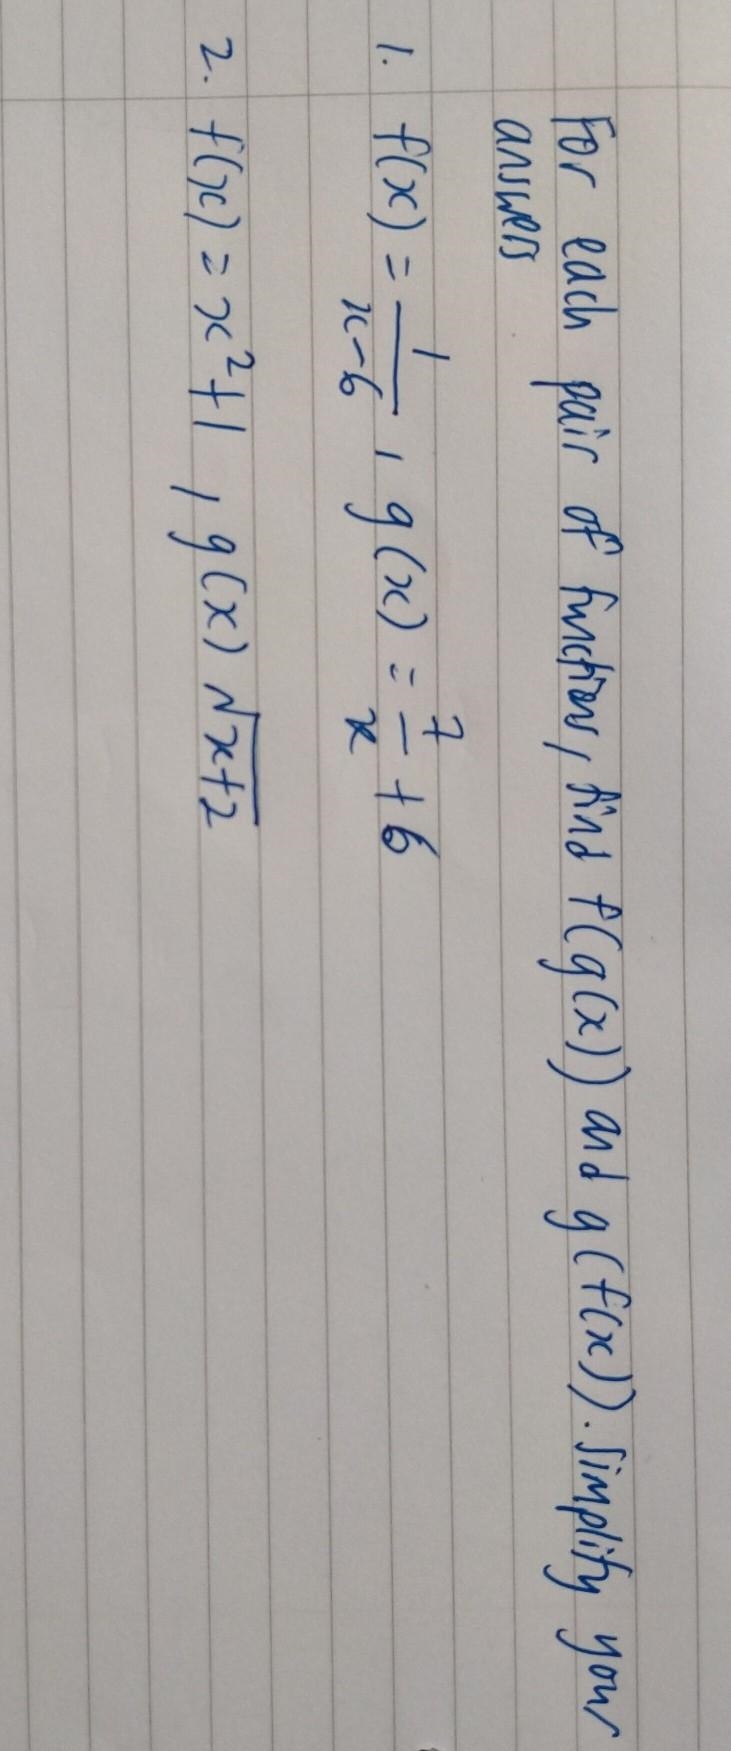 For each pair of functions, find f(g(x)) and g(f(x)). Simplify your
answers
1. f(x) = 1/(x-6) , g(x) = 7/x + 6
2. f(x) = x²+1 , g(x) √(x+2)